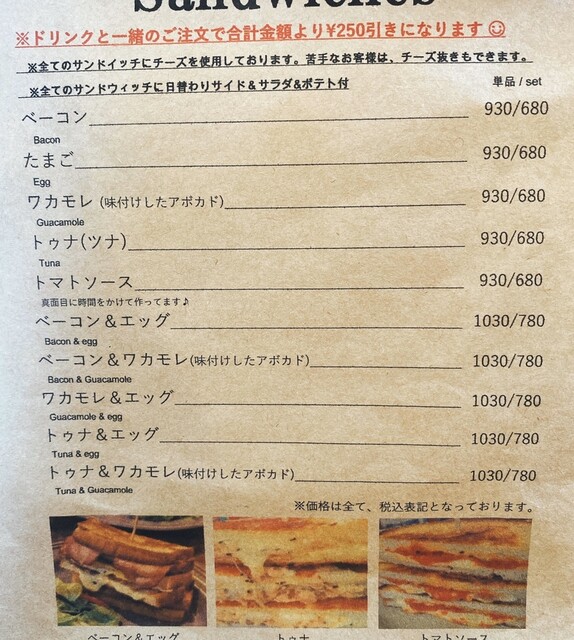 Sandwiches
※ドリンクと一緒のご注文で合計金額より¥250引きになります☺
※全てのサンドイッチにチーズを使用しております。苦手なお客様は、チーズ抜きもできます。
※全てのサンドウィッチに日替わりサイド＆サラダ&ポテト付
単品 / set
ベーコン 930/680
Bacon
たまご 930/680
Egg
ワカモレ (味付けしたアボカド) 930/680
Guacamole
トゥナ(ツナ) 930/680
Tuna
トマトソース 930/680
真面目に時間をかけて作ってます♪
ベーコン＆エッグ 1030/780
Bacon & egg
ベーコン＆ワカモレ(味付けしたアボカド) 1030/780
Bacon & Guacamole
ワカモレ＆エッグ 1030/780
Guacamole & egg
トゥナ＆エッグ 1030/780
Tuna & egg
トゥナ＆ワカモレ(味付けしたアボカド) 1030/780
Tuna & Guacamole
※価格は全て、税込表記となっております。
ベーコン＆エッグ トゥナ トマトソース